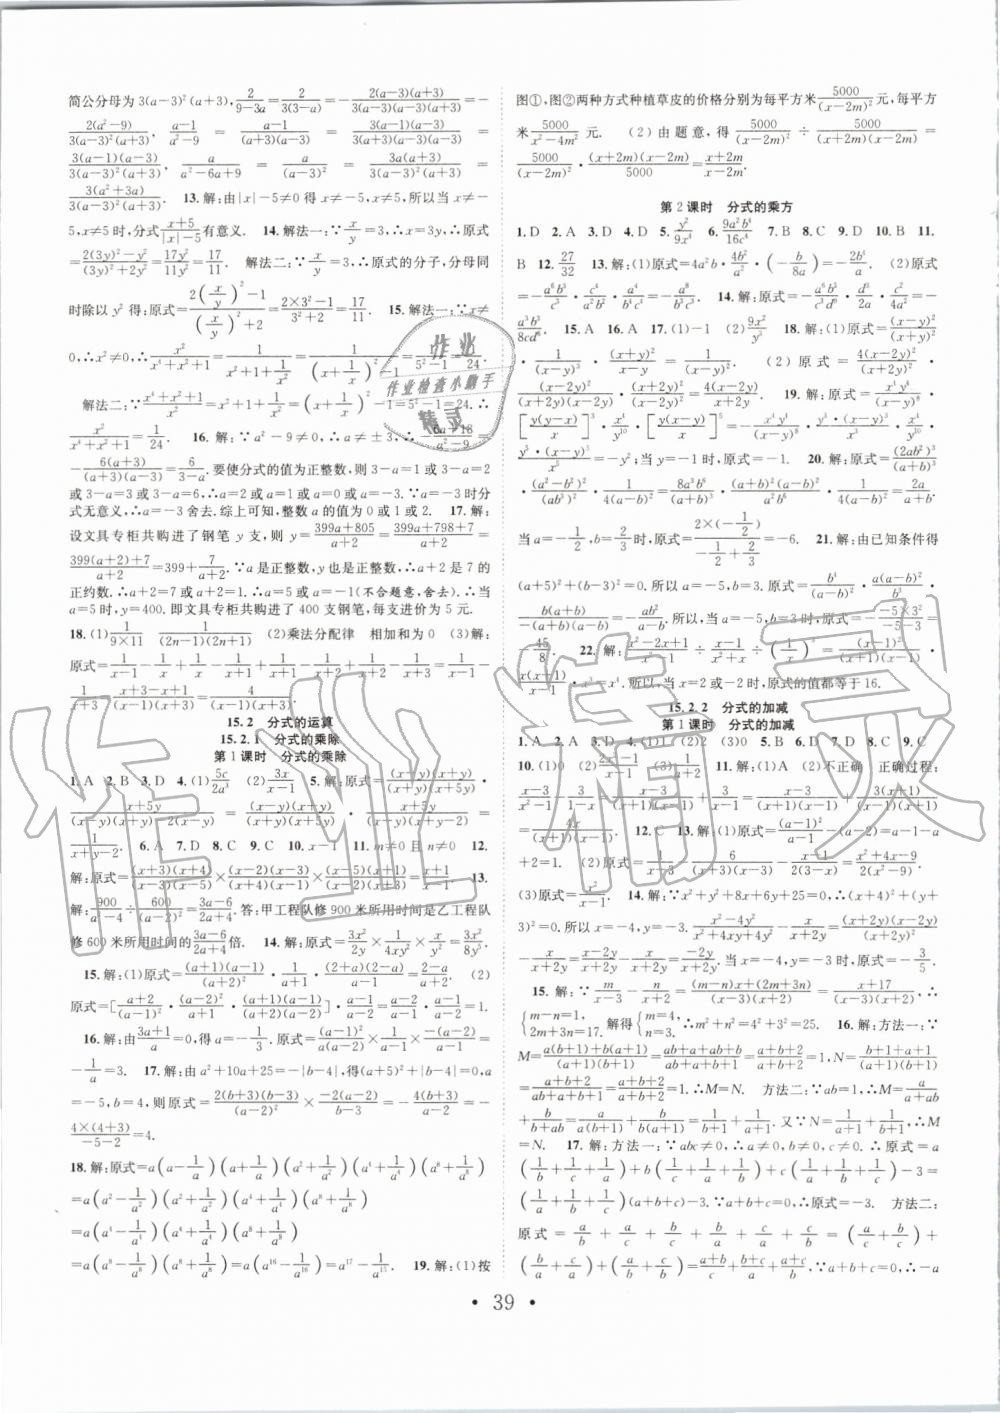 简公分母为3(a−3)²(a+3),2/(9−3a)=2/(3(3−a))=−2(a−3)(a+3)/(3(a−3)(a−3)(a+3))=−
2(a²−9)/(3(a−3)²(a+3)),(a−1)/(a²−9)=(a−1)/((a+3)(a−3))=3(a−1)(a−3)/(3(a−3)(a−3)(a+3))=
3(a−1)(a−3)/(3(a−3)²(a+3)),a/(a²−6a+9)=a/(a−3)²=3a(a+3)/(3(a−3)²(a+3))=
3(a²+3a)/(3(a−3)²(a+3)). 13.解:由|x|−5≠0得x≠−5,x≠5,所以当x≠−
5,x≠5时,分式(x+5)/(|x|−5)有意义. 14.解法一:∵x/y=3,∴x=3y,∴原式
=(2(3y)²−y²)/((3y)²+2y²)=17y²/11y²=17/11. 解法二:∵x/y=3,∴原式的分子,分母同
时除以y²得:原式=(2(x/y)²−1)/((x/y)²+2)=(2×3²−1)/(3²+2)=17/11. 15.解法一:∵x≠
0,∴x²≠0,∴x²/(x⁴+x²+1)=1/(x²+1+1/x²)=1/((x+1/x)²−1)=1/(5²−1)=1/24.
解法二:∵(x⁴+x²+1)/x²=x²+1+1/x²=(x+1/x)²−1=5²−1=24.∴
x²/(x⁴+x²+1)=1/24. 16.解:∵a²−9≠0,∴a≠±3,∴(6a+18)/(a²−9)=
−6(a+3)/((a+3)(a−3))=6/(3−a).要使分式的值为正整数,则3−a=1或3−a=2
或3−a=3或3−a=6,∴a=2或a=1或a=0或a=−3.∵a=−3时分
式无意义,∴a=−3舍去.综上可知,整数a的值为0或1或2. 17.解:
设文具专柜共购进了钢笔y支,则y=(399a+805)/(a+2)=(399a+798+7)/(a+2)=
(399(a+2)+7)/(a+2)=399+7/(a+2).∵a是正整数,y也是正整数,∴a+2是7的
正约数.∴a+2=7或a+2=1.∴a=5或a=−1(不合题意,舍去).∴当
a=5时,y=400.即文具专柜共购进了400支钢笔,每支进价为5元.
18.(1)1/(9×11) 1/((2n−1)(2n+1)) (2)乘法分配律 相加和为0 (3)解:
原式=1/(x−1)−1/(x+1)+1/(x+1)−
1/(x+3)=(x+3−x+1)/((x−1)(x+3))=4/((x−1)(x+3)).
15.2 分式的运算
15.2.1 分式的乘除
第1课时 分式的乘除
1.A 2.B 3.D 4.(1)5c/2a³ (2)3x/(x−1) 5.解:原式=
6.A 7.D 8.C 9.C 10.x−1 11.m≠0且n≠0 12.
解:原式=(x+3)(x+4)/((x−2)(x−3))×(x−2)(x−3)/((x−5)(x+4))= 13.
解:900/(a²−4)÷600/(a−2)²=(3a−6)/(2a+4).答:甲工程队修900米所用时间是乙工程队
修600米所用时间的(3a−6)/(2a+4)倍. 14.解:原式=3x²/2y×1/4xy×x²/y²=3x³/8y⁴.
15.解:(1)原式=(a+1)(a−1)/(a+2)²·1/(a+1)·(2+a)(2−a)/(a−1)=(2−a)/(a+2). (2)
原式=[(a+2)/(a−1)²·(a−2)²/(a+1)·(a+1)(a−1)/((a+2)(a−2))]·(a−1)/(a−2)=(a−2)/(a−1)·(a−1)/(a−2)=1.
16.解:由(3a+1)/a=0,得a=−1/3.原式=(a−1)²/(a−2)×1/(a−1)×−(a−2)/(a(a−1))=
−1/a=3. 17.解:∵a²+10a+25=−|b−4|,得(a+5)²+|b−4|=0,∴a
=−5,b=4,则原式=2(b+3)(b−3)/(a−2)²×−2(a−2)/(b−3)=−4(b+3)/(a−2)=
−4×(4+3)/(−5−2)=4.
18.解:原式=a(a−1/a)(a+1/a)(a²+1/a²)(a⁴+1/a⁴)(a⁸+1/a⁸)
=a(a²−1/a²)(a²+1/a²)(a⁴+1/a⁴)(a⁸+1/a⁸)
=a(a⁴−1/a⁴)(a⁴+1/a⁴)(a⁸+1/a⁸)
=a(a⁸−1/a⁸)(a⁸+1/a⁸)=a(a¹⁶−1/a¹⁶)=a¹⁷−1/a¹⁵. 19.解:(1)按
图①,图②两种方式种植草皮的价格分别为每平方米5000/(x−2m)²元,每平方
米5000/(x²−4m²)元. (2)由题意,得5000/(x−2m)²÷5000/((x−2m)(x+2m))=
5000/(x−2m)²·(x+2m)(x−2m)/5000=(x+2m)/(x−2m).
第2课时 分式的乘方
1.D 2.A 3.D 4.D 5.y²/9x⁴ 6.9a²b⁴/16c⁴ 7.B 8.C 9.D 10.B 11.
B 12.27/32 13.解:(1)原式=4a²b·4b²/a²·(−b/8a)=−2b⁴/a. (2)原式
=−a⁶b³/c³·c²/a²b²·c²/a⁴b⁴= 14.解:原式=−a⁶b³/c³d⁹·d³/2a·c²/4a²=−
a³b³/8cd⁶. 15.A 16.A 17.(1)−1 (2)9x²/y³ 18.解:(1)原式=(x−y)²/(x+y)²
·1/(x−y)·(x+y)²/(x−y)=1. (2)原式=4(x−2y)²/(x+2y)²
·(x+2y)(x−2y)/(x−2y)²= 19.解:原式=
=−y²;当y=−1时,原式=−1. 20.解:原式=(2ab²)³/(a+b)³
·(a²−b²)²/(ab³)²·1/(4(a−b)²)=8a³b⁶/(a+b)³·(a+b)²(a−b)²/a²b⁶·1/(4(a−b)²)=2a/(a+b).
当a=−1/2,b=2/3时,原式=2×(−1/2)/(−1/2+2/3)=−6. 21.解:由已知条件得
(a+5)²+(b−3)²=0.所以a=−5,b=3.原式=
45/8. 22.解:
x⁴.所以,当x=2或x=−2时,原式的值都等于16.
15.2.2 分式的加减
第1课时 分式的加减
1.A 2.A 3.D 4.(1)1 (2)2 (3)0 5.B 6.B 7.D 8.C 9.C
10.(1)0 (2) 11.解:(1)A (2)不正确 正确过程:
(x−3)/(x²−1)−3/(1−x)=(x−3)/((x+1)(x−1))+3/(x−1)=(x−3)/((x+1)(x−1))+3(x+1)/((x+1)(x−1))
=4x/((x+1)(x−1)). 12.C 13.解:(1)原式=(a−1)²/(a−1)−a+2=a−1−a
+2=1. (2)原式=
(3)原式=x²/(x−1). 14.解:∵x²+y²+8x+6y+25=0,∴(x+4)²+(y+
3)²=0.所以x=−4,y=−3.(x²−4y²)/(x²+4xy+4y²)−x/(x+2y)=(x+2y)(x−2y)/(x+2y)²
−x/(x+2y)=(x−2y)/(x+2y)−x/(x+2y)=−2y/(x+2y).当x=−4,y=−3时,原式=−3/5.
15.解:∵m/(x−3)−n/(x+2)=((m−n)x+(2m+3n))/((x−3)(x+2))=(x+17)/((x−3)(x+2)),∴
{m−n=1,2m+3n=17. 解得{m=4,n=3.∴m²+n²=4²+3²=25. 16.解:方法一:∵
M=(a(b+1)+b(a+1))/((a+1)(b+1))=(ab+a+ab+b)/(ab+a+b+1)=(a+b+2)/(a+b+2)=1,N=(b+1+a+1)/((a+1)(b+1))
=(a+b+2)/(ab+a+b+1)=(a+b+2)/(a+b+2)=1.∴M=N. 方法二:∵ab=1,∴M=a/(a+ab)+
b/(b+ab)=a/(a(1+b))+b/(b(a+1))=1/(b+1)+1/(a+1).又∵N=1/(a+1)+1/(b+1),∴M
=N. 17.解:方法一:∵abc≠0,∴a≠0,b≠0,c≠0.∴原式=a
(1/b+1/c)+b(1/c+1/a)+c(1/a+1/b)=(a+b+c)(1/a+1/b+1/c)−3=
(1/a+1/b+1/c)(a+b+c)−3.∵a+b+c=0,∴原式=−3. 方法二:
原式=a/b+a/c+b/c+b/a+c/a+c/b=(a/c+b/c)+
(b/a+c/a)+(a/b+c/b)=(a+b)/c+(b+c)/a+(a+c)/b,∵a+b+c=0,∴−a
• 39 •
作业
作业检查小助手
精灵
作业精灵